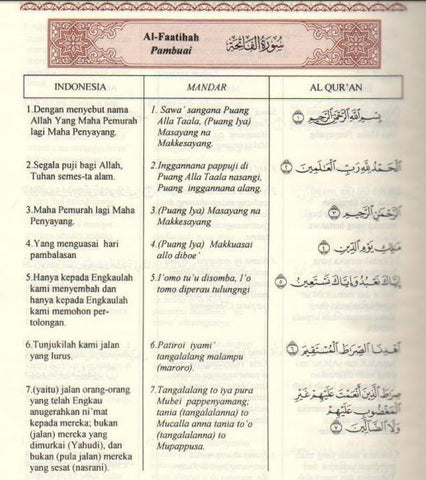 Al-Faatihah
Pambuai
سُورَةُ الْفَاتِحَةِ
INDONESIA
MANDAR
AL QUR'AN
1.Dengan menyebut nama
Allah Yang Maha Pemurah
lagi Maha Penyayang.
1. Sawa' sangana Puang
Alla Taala, (Puang Iya)
Masayang na
Makkesayang.
بِسْمِ اللَّهِ الرَّحْمَٰنِ الرَّحِيمِ ١
2.Segala puji bagi Allah,
Tuhan semes-ta alam.
2.Inggannana pappuji di
Puang Alla Taala nasangi,
Puang inggannana alang.
الْحَمْدُ لِلَّهِ رَبِّ الْعَالَمِينَ ٢
3.Maha Pemurah lagi Maha
Penyayang.
3.(Puang Iya) Masayang na
Makkesayang
الرَّحْمَٰنِ الرَّحِيمِ ٣
4.Yang menguasai hari
pambalasan
4.(Puang Iya) Makkuasai
allo diboe'
مَالِكِ يَوْمِ الدِّينِ ٤
5.Hanya kepada Engkaulah
kami menyembah dan
hanya kepada Engkaulah
kami memohon per-
tolongan.
5.I'omo tu'u disomba, I'o
tomo diperau tulungngi
إِيَّاكَ نَعْبُدُ وَإِيَّاكَ نَسْتَعِينُ ٥
6.Tunjukilah kami jalan
yang lurus.
6.Patiroi iyami'
tangalalang malampu
(maroro).
اهْدِنَا الصِّرَاطَ الْمُسْتَقِيمَ ٦
7.(yaitu) jalan orang-orang
yang telah Engkau
anugerahkan ni'mat
kepada mereka; bukan
(jalan) mereka yang
dimurkai (Yahudi), dan
bukan (pula jalan) mereka
yang sesat (nasrani).
7.Tangalalang to iya pura
Mubei pappenyamang;
tania (tangalalanna) to
Mucalla anna tania to'o
(tangalalanna) to
Mupappusa.
صِرَاطَ الَّذِينَ أَنْعَمْتَ عَلَيْهِمْ غَيْرِ
الْمَغْضُوبِ عَلَيْهِمْ
وَلَا الضَّالِّينَ ٧